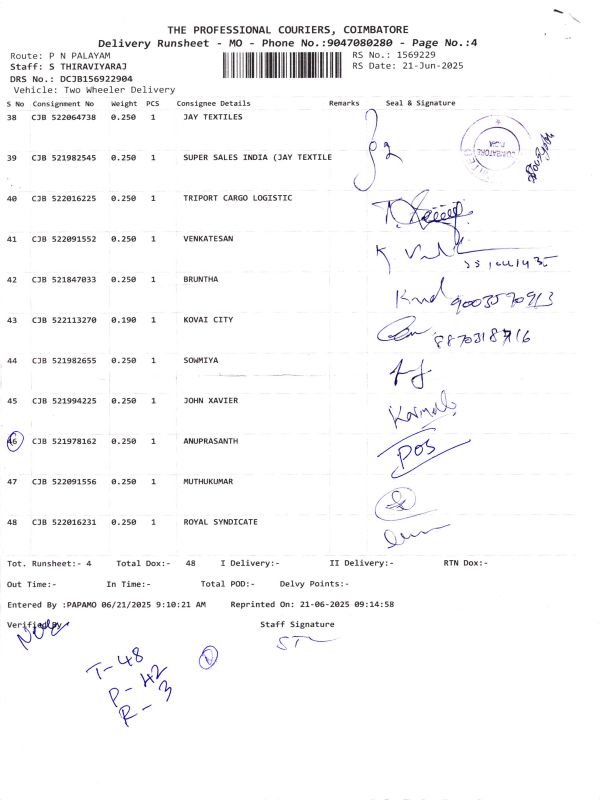 THE PROFESSIONAL COURIERS, COIMBATORE
Delivery Runsheet - MO - Phone No.:9047080280 - Page No.:4
Route: P N PALAYAM
RS No.: 1569229
Staff: S THIRAVIYARAJ
RS Date: 21-Jun-2025
DRS No.: DCJB156922904
Vehicle: Two Wheeler Delivery
S No Consignment No Weight PCS Consignee Details Remarks Seal & Signature
38 CJB 522064738 0.250 1 JAY TEXTILES
COIMBATORE
39 CJB 521982545 0.250 1 SUPER SALES INDIA (JAY TEXTILE
40 CJB 522016225 0.250 1 TRIPORT CARGO LOGISTIC
41 CJB 522091552 0.250 1 VENKATESAN
42 CJB 521847033 0.250 1 BRUNTHA
9003570913
43 CJB 522113270 0.190 1 KOVAI CITY
8870318716
44 CJB 521982655 0.250 1 SOWMIYA
45 CJB 521994225 0.250 1 JOHN XAVIER
46 CJB 521978162 0.250 1 ANUPRASANTH
POS
47 CJB 522091556 0.250 1 MUTHUKUMAR
48 CJB 522016231 0.250 1 ROYAL SYNDICATE
Tot. Runsheet:- 4 Total Dox:- 48 I Delivery:- II Delivery:- RTN Dox:-
Out Time:- In Time:- Total POD:- Delvy Points:-
Entered By :PAPAMO 06/21/2025 9:10:21 AM Reprinted On: 21-06-2025 09:14:58
Verified By Staff Signature
T-48
P-42
R-3